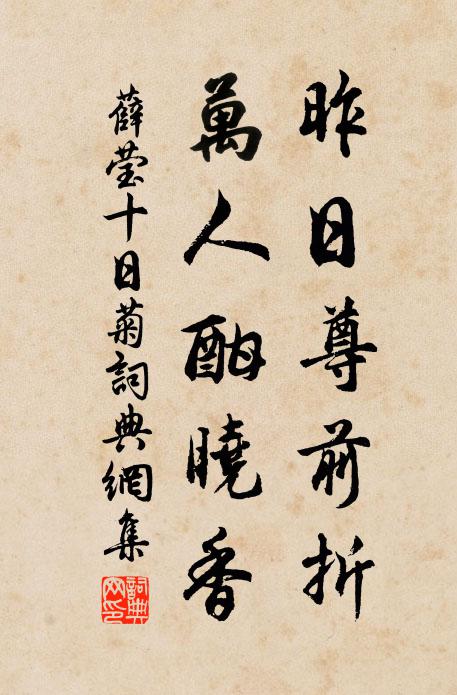 昨日尊前折
萬人酣曉香
薛瑩十日菊詞典網集
詞典網印